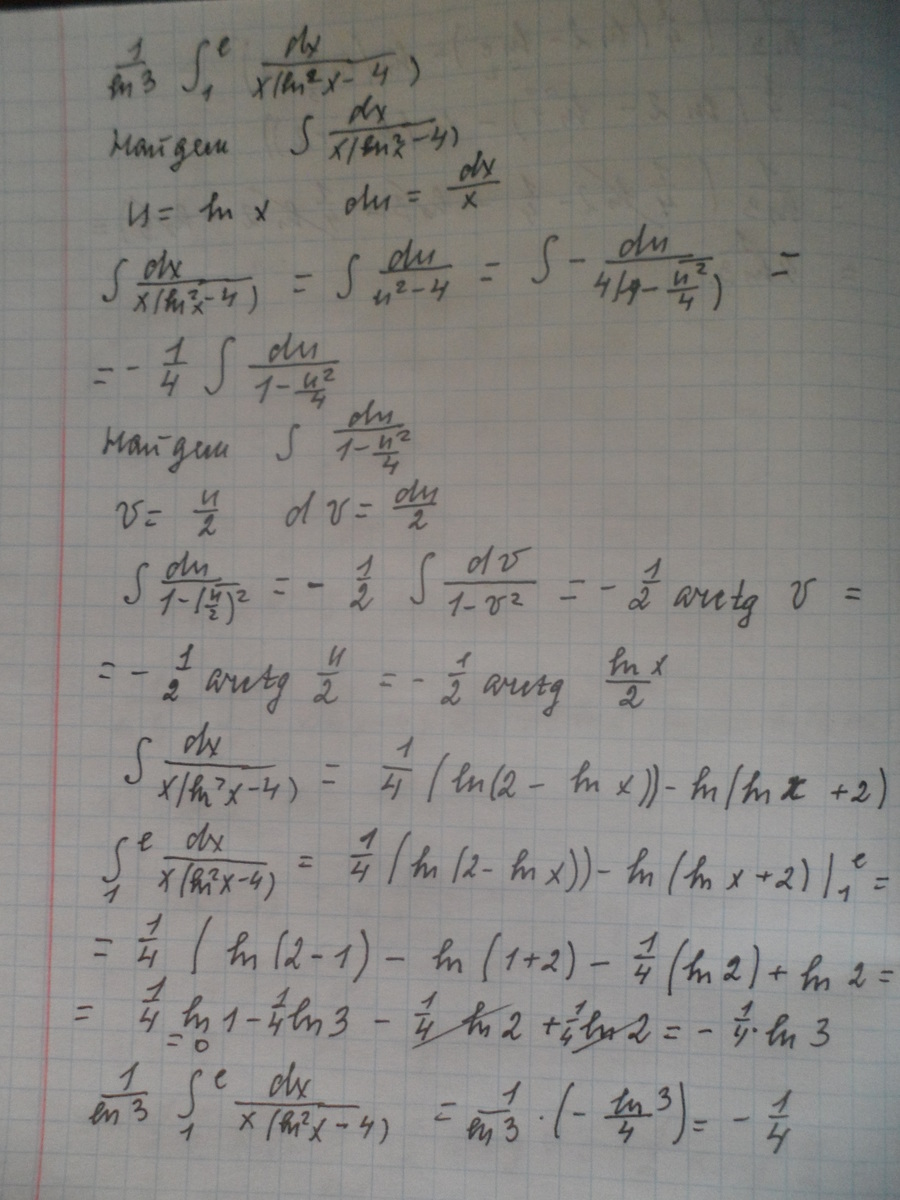 1/ln 3 ∫₁ᵉ dx/x(ln²x - 4)
Найдем ∫ dx/x(ln²x - 4)
u = ln x du = dx/x
∫ dx/x(ln²x - 4) = ∫ du/u² - 4 = ∫ - du/4(1 - u²/4) =
= - 1/4 ∫ du/1 - u²/4
Найдем ∫ du/1 - u²/4
v = u/2 dv = du/2
∫ du/1 - (u/2)² = - 1/2 ∫ dv/1 - v² = - 1/2 arctg v =
= - 1/2 arctg u/2 = - 1/2 arctg ln x/2
∫ dx/x(ln²x - 4) = 1/4 (ln(2 - ln x)) - ln(ln x + 2)
∫₁ᵉ dx/x(ln²x - 4) = 1/4 (ln(2 - ln x)) - ln(ln x + 2) |₁ᵉ =
= 1/4 (ln(2 - 1) - ln(1 + 2) - 1/4 (ln 2) + ln 2 =
= 1/4 ln 1 - 1/4 ln 3 - 1/4 ln 2 + 1/4 ln 2 = - 1/4 · ln 3
= 0
1/ln 3 ∫₁ᵉ dx/x(ln²x - 4) = 1/ln 3 · (- ln 3/4) = - 1/4